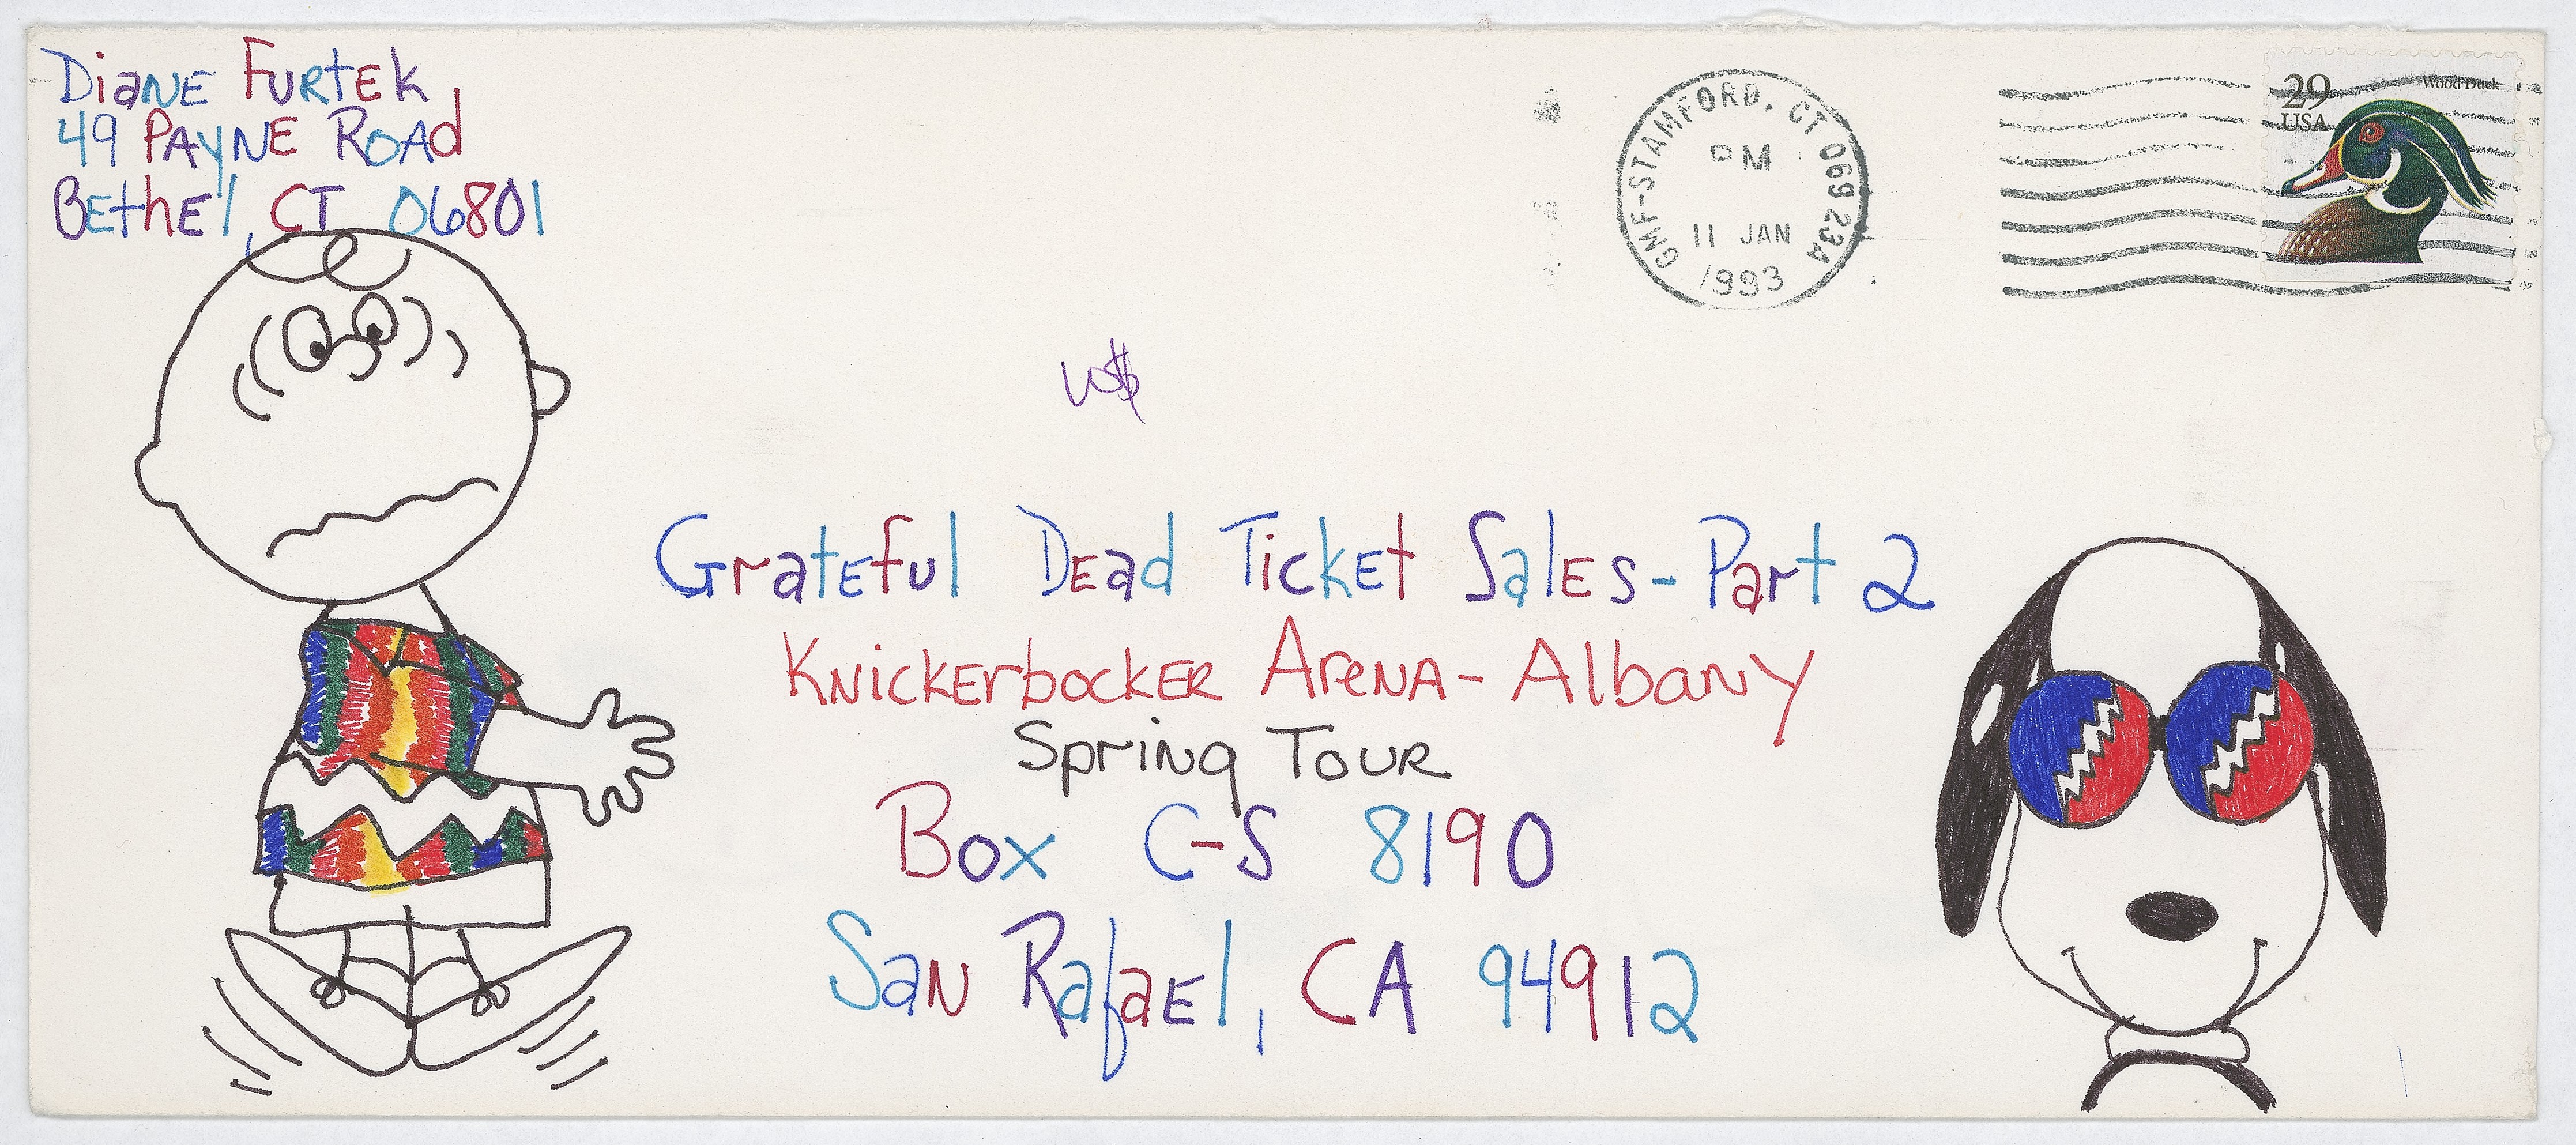 Diane Furtek
49 Payne Road
Bethel, CT 06801
GMF-STAMFORD, CT 069 23A
PM
11 JAN
1993
29
USA
Wood Duck
Grateful Dead Ticket Sales - Part 2
Knickerbocker Arena - Albany
Spring Tour
Box C-S 8190
San Rafael, CA 94912